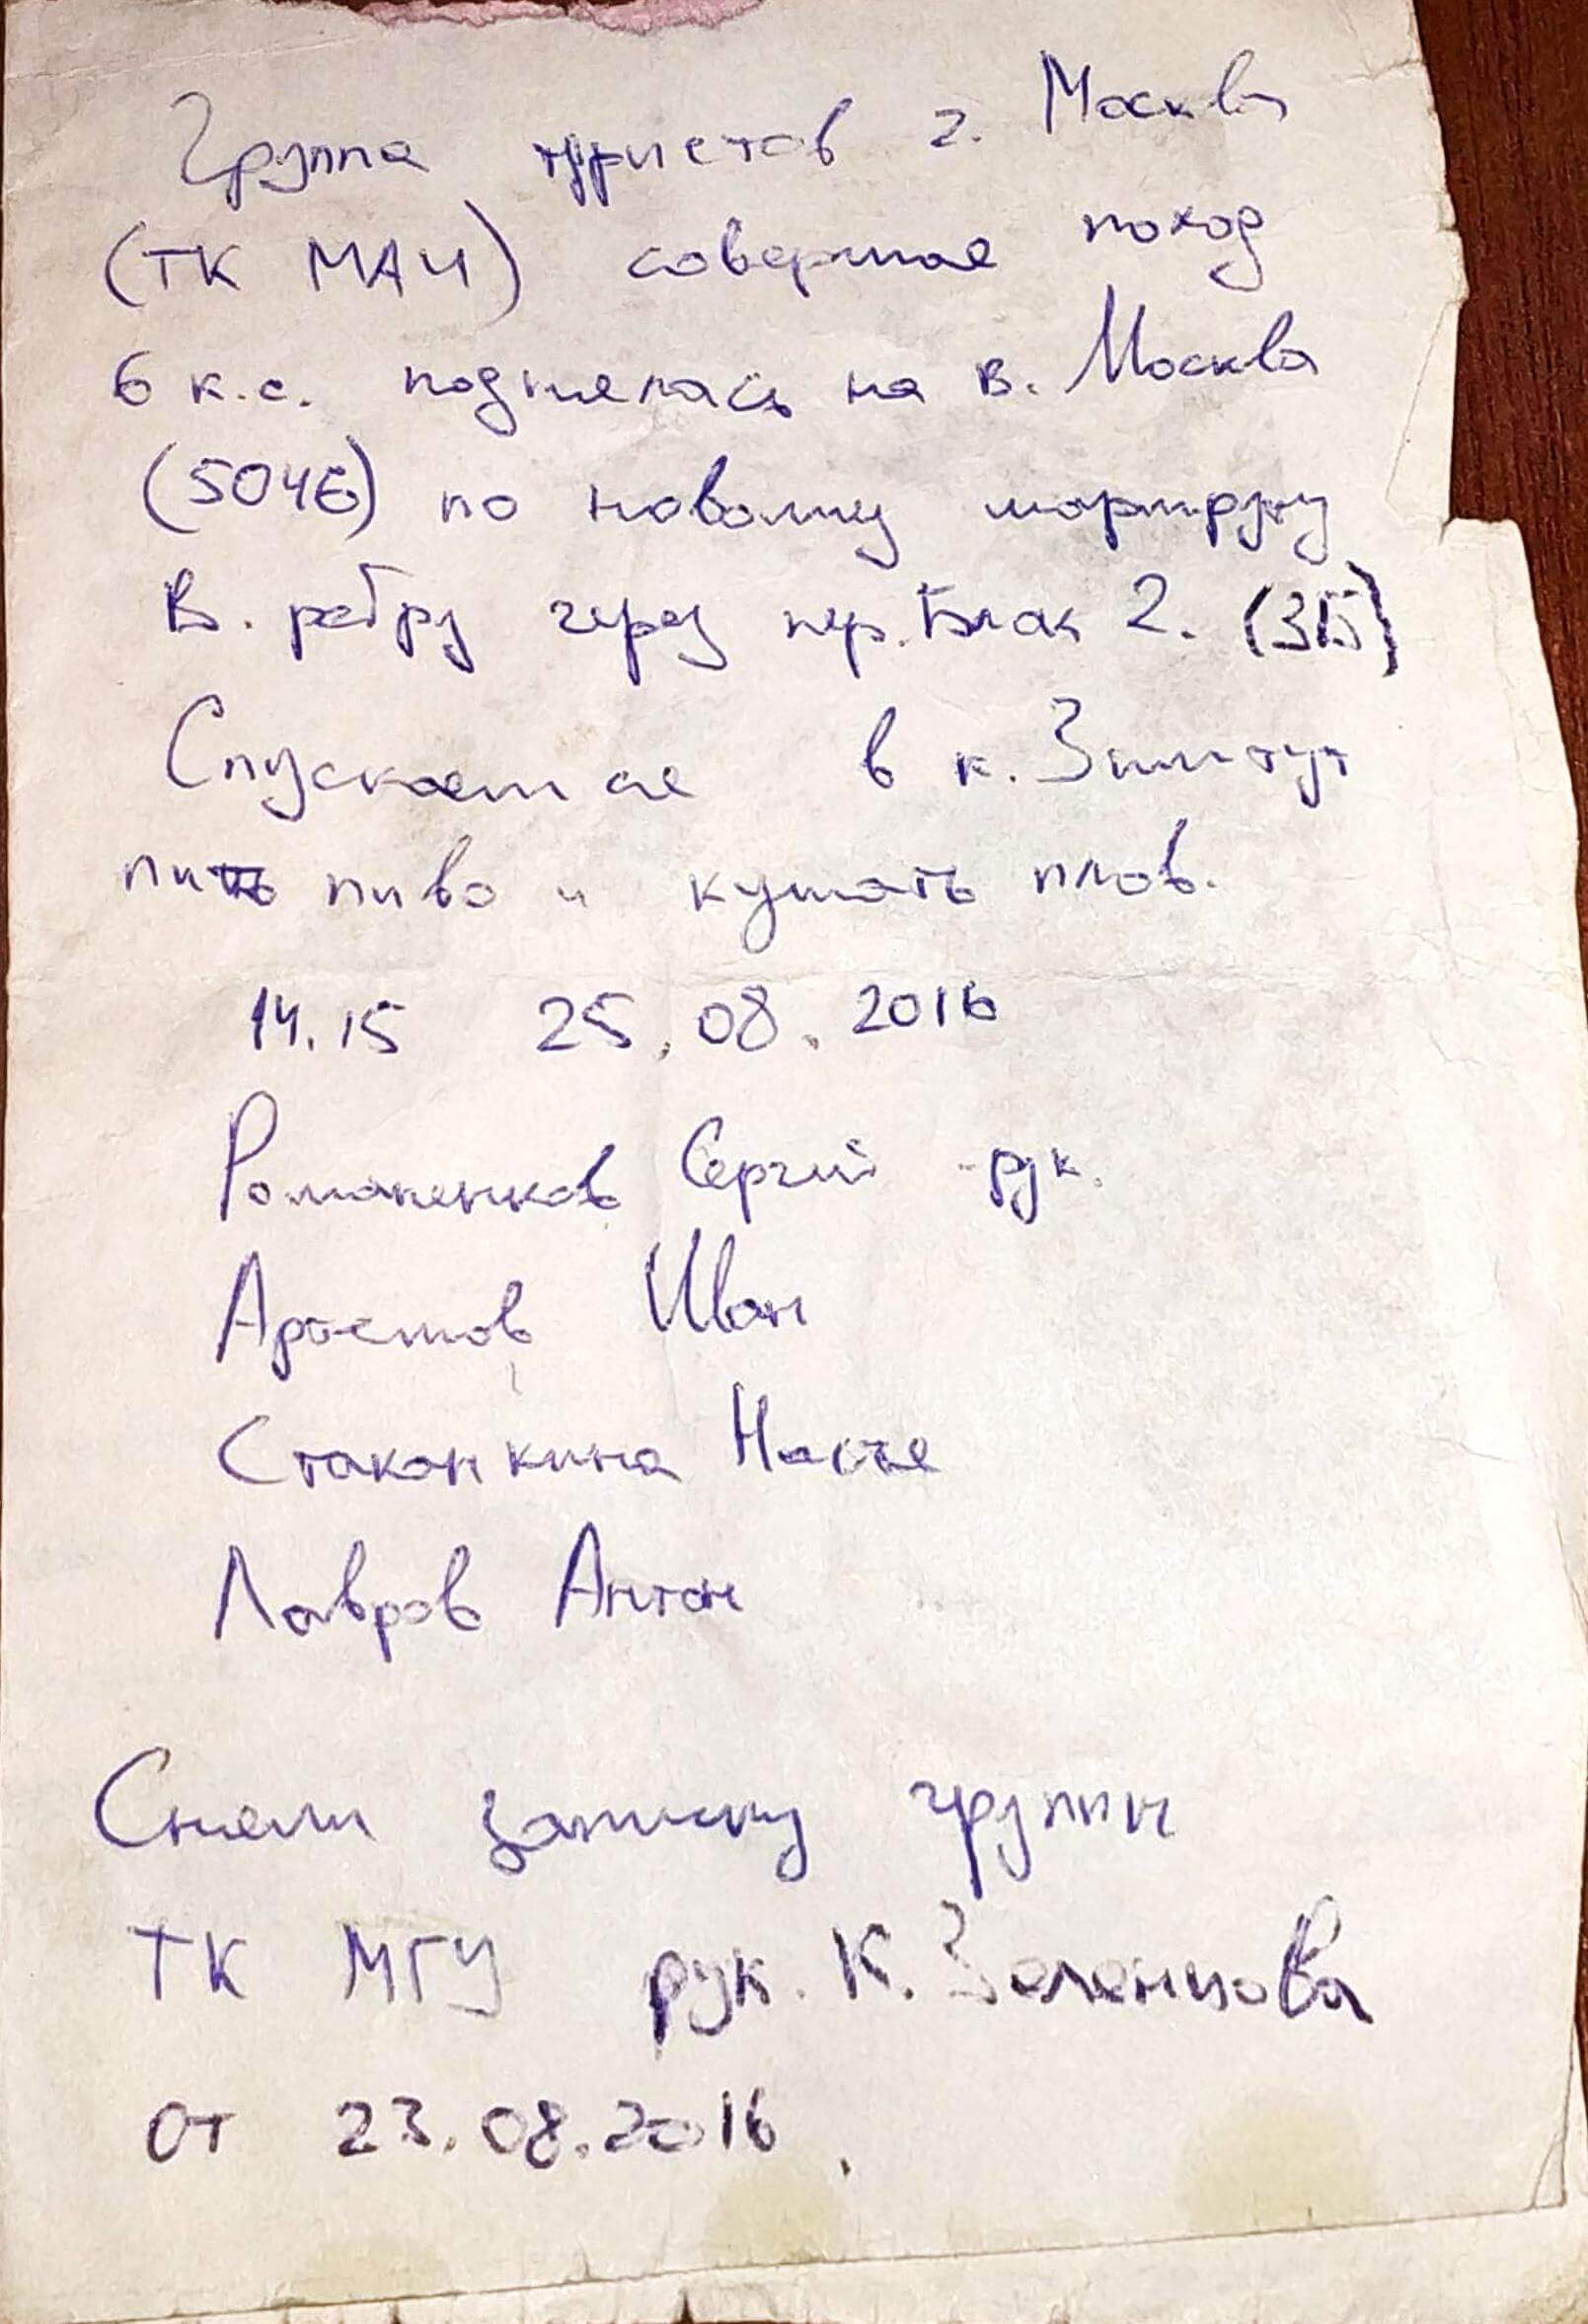 Группа туристов г. Москвы
(ТК МАИ) совершая поход
6 к.с. поднялась на в. Москва
(5046) по новому маршруту
В. ребру через пер. Блок 2. (3Б)
Спускаемся в к. Зимтут
пить пиво и кушать плов.
14.15 25.08.2016
Романенков Сергей - рук.
Аристов Иван
Стаканкина Настя
Лавров Антон
Сняли записку группы
ТК МГУ рук. К. Зеленцова
от 23.08.2016.